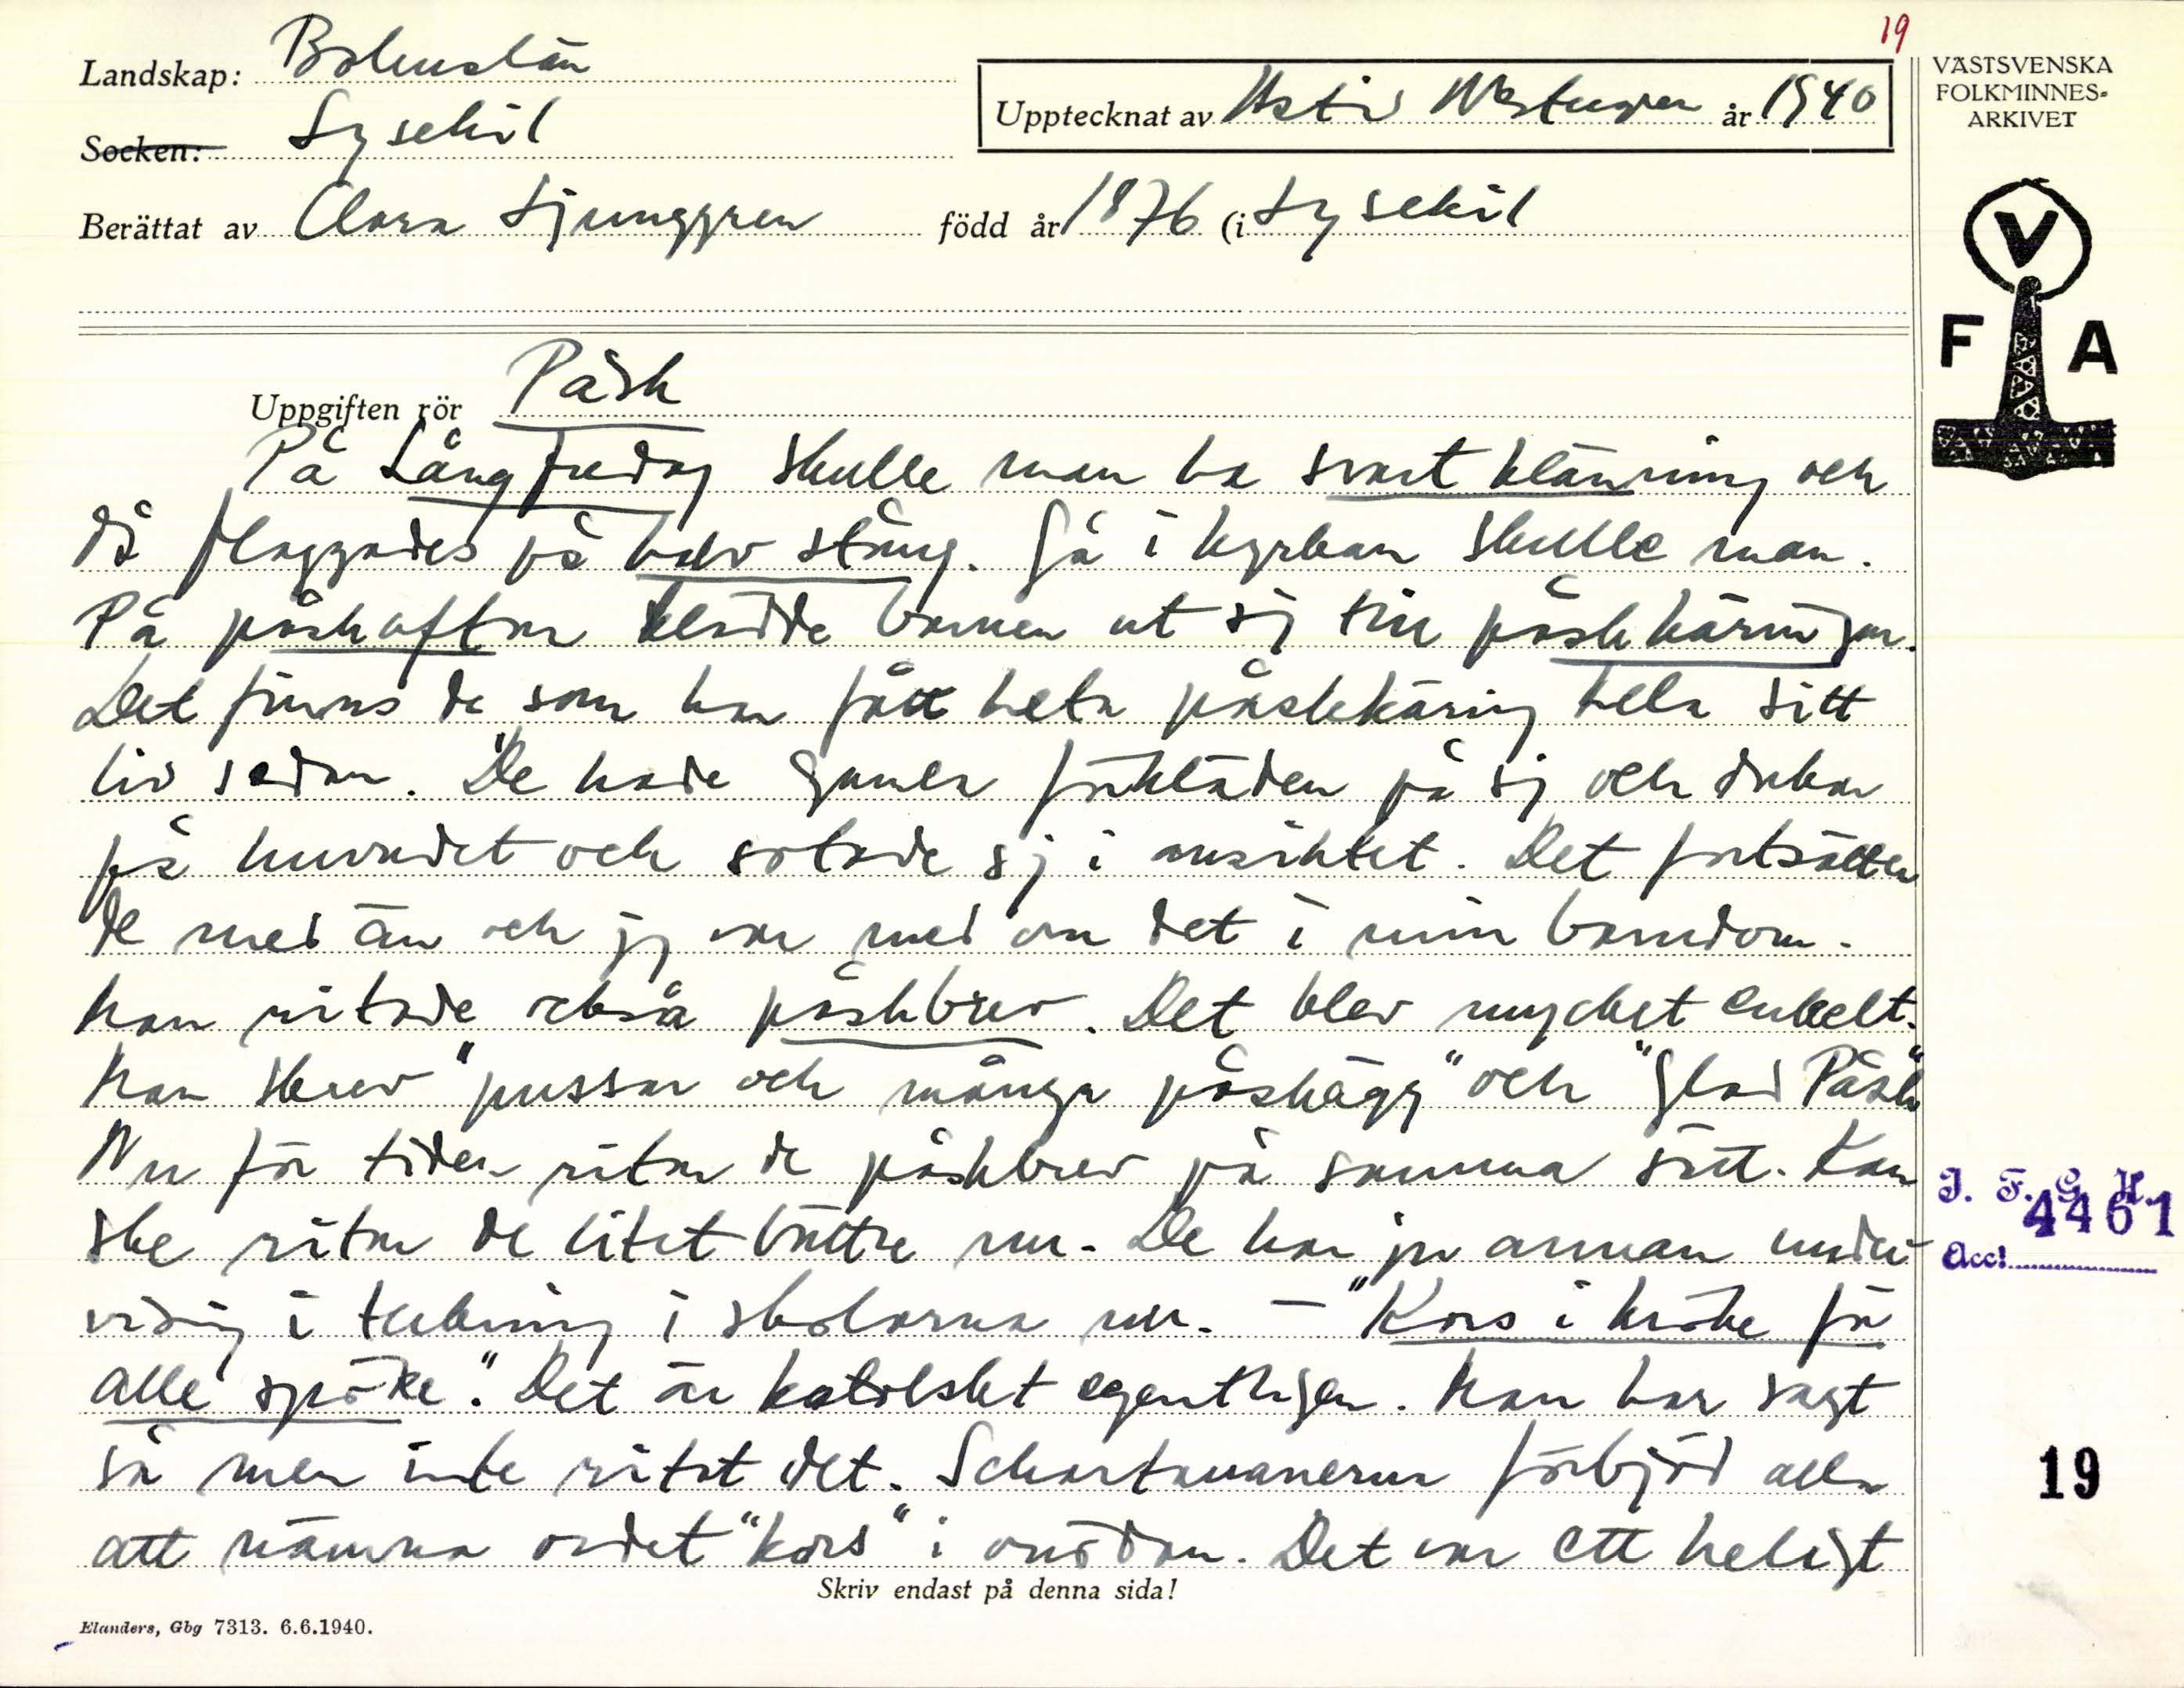 19
Landskap: Bohuslän
Socken: Lysekil
Upptecknat av år 1940
Berättat av Clara Ljunggren född år 1876 (i Lysekil
VÄSTSVENSKA
FOLKMINNES-
ARKIVET
V
F A
Uppgiften rör Påsk
På Långfredag skulle man ha svart klänning och
då flaggades på halv stång. Gå i kyrkan skulle man.
På påskafton klädde barnen ut sig till påskkäringar.
Det finns de som har fått heta påskkäring hela sitt
liv sedan. "De hade gamla förkläden på sig och dukar
på huvudet och sotade sig i ansiktet. Det fortsätter
de med än och jag var med om det i min barndom.
Man ritade också påskbrev. Det blev mycket enkelt.
Man skrev "pussar och många påskägg" och "Glad Påsk"
Nu för tiden ritar de påskbrev på samma sätt. Kan
ske ritar de litet bättre nu. De har ju annan under
visning i teckning i skolorna nu. – "Kors i kröke för
alle spöke". Det är katolskt egentligen. Man har sagt
så men inte ritat det. Schartauanerna förbjöd alla
att nämna ordet "kors" i onödan. Det var ett heligt
Skriv endast på denna sida!
Elanders, Gbg 7313. 6.6.1940.
I. F. G. H.
4461
Acc!
19